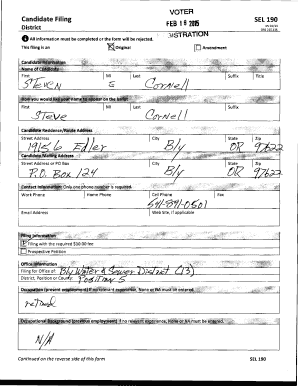 VOTER
Candidate Filing
District
FEB 19 2015
SEL 190
All information must be completed or the form will be rejected.
This filing is an Original Amendment
Candidate Information
Name of Candidate
First MI Last Suffix Title
STEVEN E Cornell
How would you like your name to appear on the ballot
First MI Last Suffix
Steve Cornell
Candidate Residence/Route Address
Street Address City State Zip
Edler Bly OR 97622
Candidate Mailing Address
Street Address or PO Box City State Zip
P.O. Box 124 Bly OR 97622
Contact Information Only one phone number is required.
Work Phone Home Phone Cell Phone Fax
541-891-0501
Email Address Web Site, if applicable
Filing Information
Filing with the required $10.00 fee
Prospective Petition
Office Information
Filing for Office of: Bly Water & Sewer District (13)
District, Position or County: Position 5
Occupation (present employment) If no relevant experience, None or NA must be entered.
retired
Occupational Background (previous employment) If no relevant experience, None or NA must be entered.
N/A
Continued on the reverse side of this form SEL 190